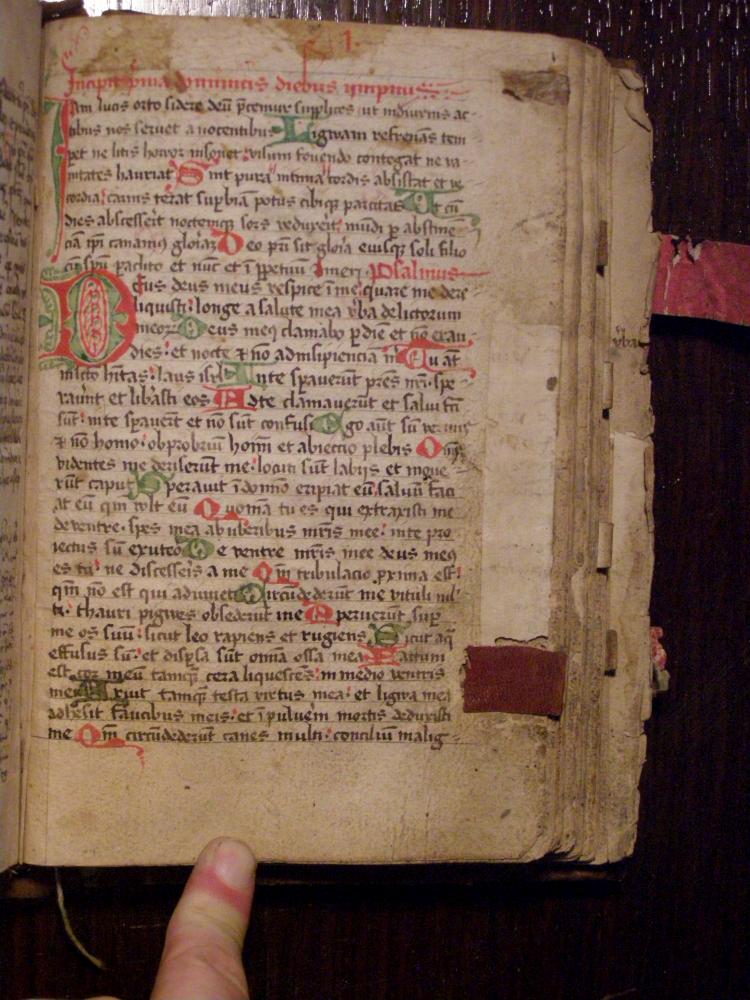 1.
Incipit p̄ma dominicis diebus ympnus
Iam lucis orto sidere deū p̄cemur supplices ut indiurnis ac-
tibus nos seruet a nocentibus Ligwam refrenās tem
pet ne litis horror insonet visum fouendo contegat ne va-
nitates hauriat Sint pura intima cordis absistat et ve
cordia carnis terat sup̄biam potus cibiqꝫ parcitas Ut cū
dies abscesserit noctemqꝫ sors reduxerit mūdi ꝑ abstinē
ciā ip̄i canamꝰ gloriā Deo pr̄i sit gloria eiusqꝫ soli filio
cū sp̄u paclito et nūc et ī ꝑpetuū Amen Psalmus
Deus deus meus respice ī me quare me dere
liquisti longe a salute mea v̄ba delictorum
meoꝝ Deus meꝰ clamabo ꝑ diē et nō exau
dies et nocte ⁊ nō ad insipiencia m̄ Tu āt
in sc̄o h̄itas laus isrl̄ In te sꝑauerūt pr̄es nr̄i spe
rauūt et lib̄asti eos Ad te clamauerūt et salui fc̄i
sūt in te sꝑauerūt et nō sūt confusi Ego aūt sū vermis
⁊ nō homo obprobriū hoīm et abiectio plebis Om̄s
videntes me deriserūt me locuti sūt labijs et moue-
rūt caput Sperauit ī domīo eripiat eū saluū faci
at eū qm̄ wlt eū Quoniā tu es qui extraxisti me
de ventre spes mea ab vberibus mr̄is mee in te pro
iectus sū ex utero De ventre mr̄is mee deus meꝰ
es tu ne discesseris a me Qm̄ tribulacio ꝓxima est
qm̄ nō est qui adiuuet Circūdederūt me vituli ml̄-
ti thauri pigwes obsederūt me Aperuerūt suꝑ
me os suū sicut leo rapiens et rugiens Sicut aq̄
effusus sū et disꝑsa sūt om̄ia ossa mea Factum
est cor meū tamqꝫ cera liquescēs in medio ventris
mei Aruit tamqꝫ testa virtus mea et ligwa mea
adhesit faucibus meis et ī puluerem mortis deduxisti
me Qm̄ circūdederūt canes multi conciliū malig-